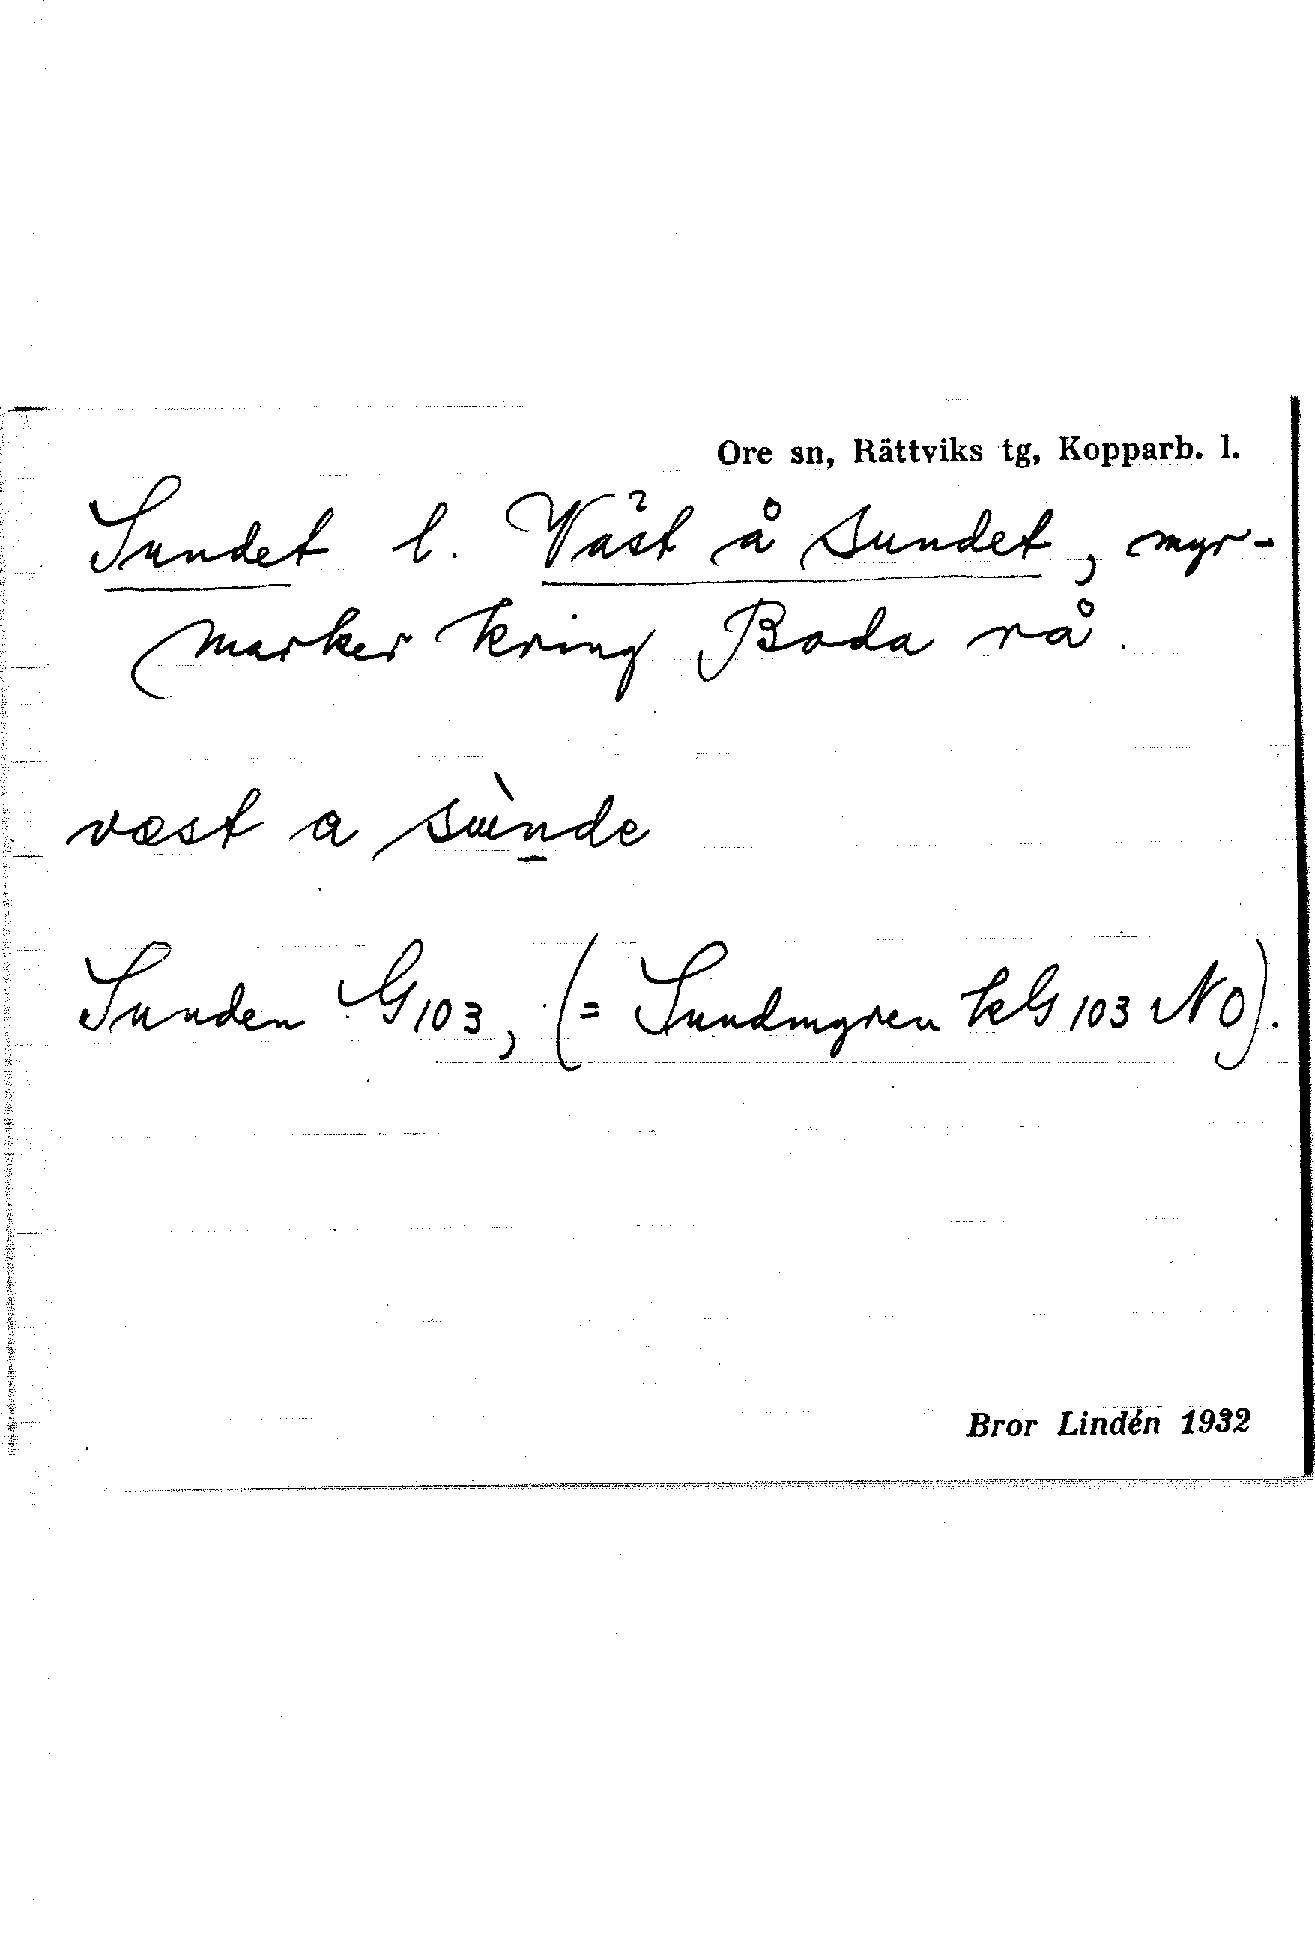 Ore sn, Rättviks tg, Kopparb. l.
Sundet l. Väst å sundet, myr-
marker kring Boda rå.
væst a sùnde
Sunden G103, (= Sundmyren kG 103 NO).
Bror Lindén 1932